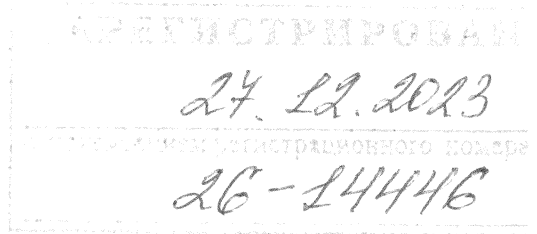 ЗАРЕГИСТРИРОВАН
27.12.2023
регистрационного номера
26-14446